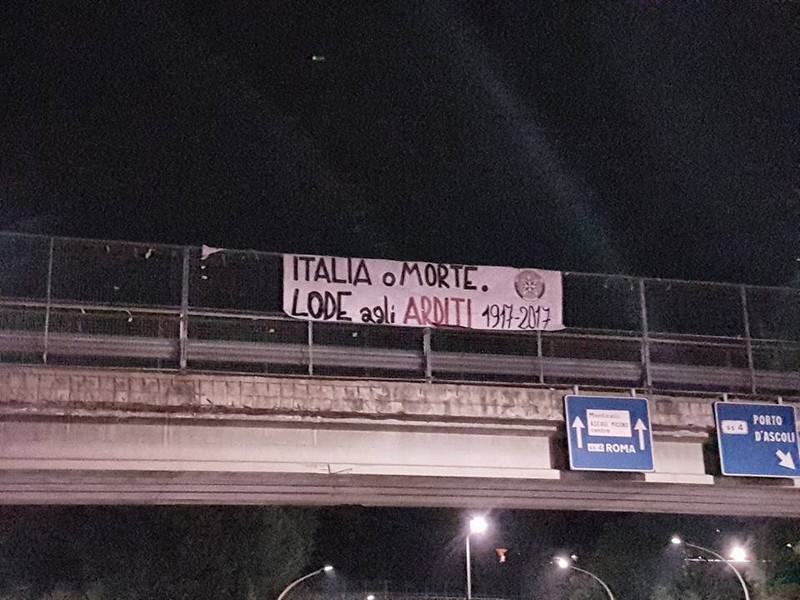 ITALIA o MORTE.
LODE agli ARDITI 1917-2017
Monticelli
ASCOLI PICENO
centro
SS 4 ROMA
SS 4
PORTO
D'ASCOLI